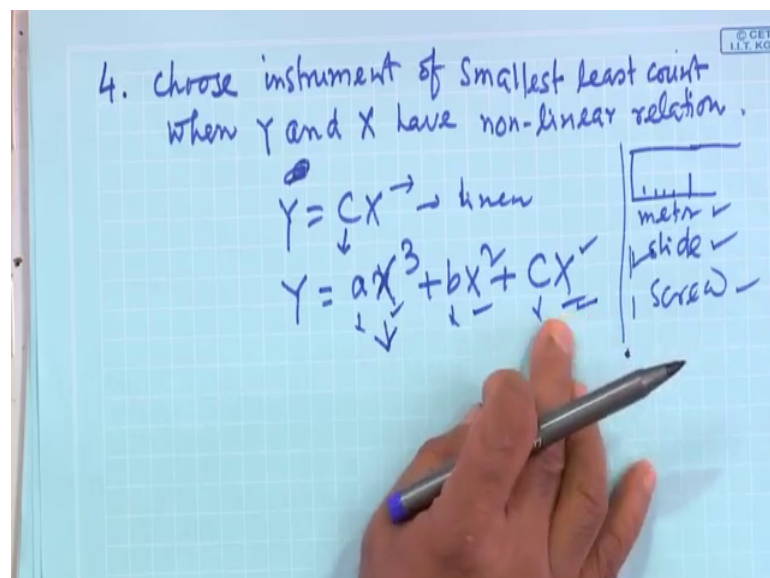 © CET
I.I.T. KG
4. Choose instrument of Smallest Least count
when Y and X have non-linear relation.
Y = CX → linear
Y = aX³ + bX² + CX
metr
slide
Screw